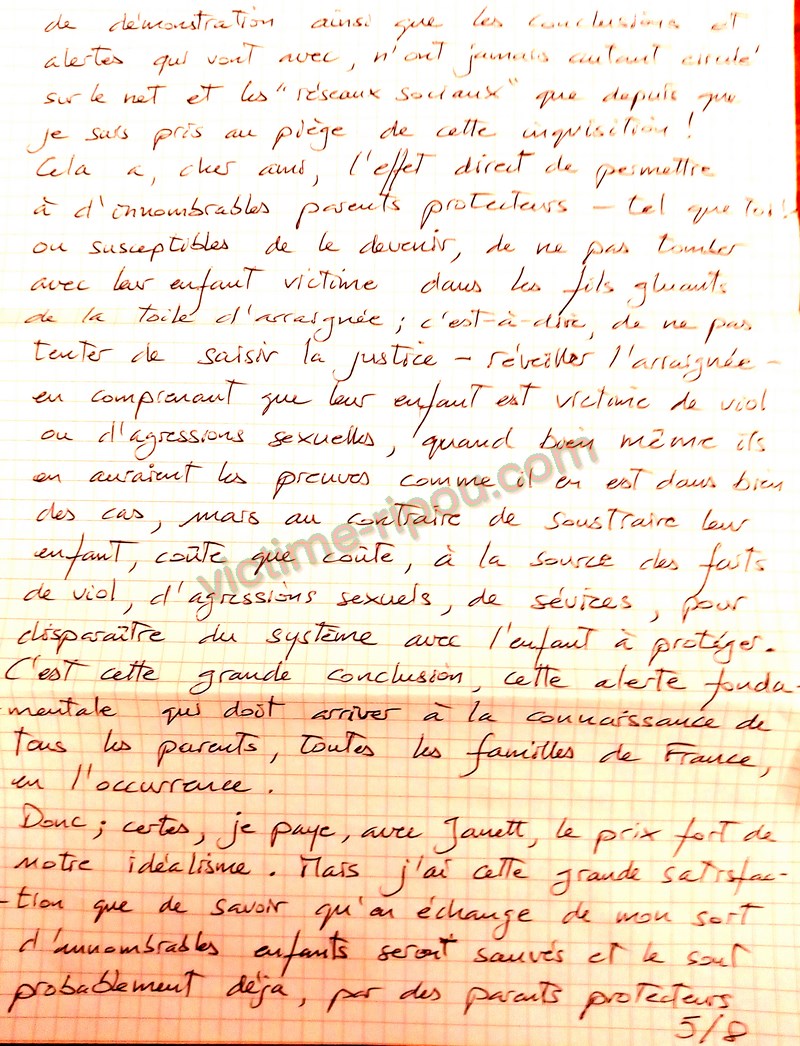 de démonstration ainsi que les conclusions et
alertes qui vont avec, n'ont jamais autant circulé
sur le net et les "réseaux sociaux" que depuis que
je suis pris au piège de cette inquisition !
Cela a, cher ami, l'effet direct de permettre
à d'innombrables parents protecteurs – tel que toi !
ou susceptibles de le devenir, de ne pas tomber
avec leur enfant victime dans les fils gluants
de la toile d'arraignée ; c'est-à-dire, de ne pas
tenter de saisir la justice – réveiller l'arraignée –
en comprenant que leur enfant est victime de viol
ou d'agressions sexuelles, quand bien même ils
en auraient les preuves comme il en est dans bien
des cas, mais au contraire de soustraire leur
enfant, coûte que coûte, à la source des faits
de viol, d'agressions sexuels, de sévices, pour
disparaître du système avec l'enfant à protéger.
C'est cette grande conclusion, cette alerte fonda-
-mentale qui doit arriver à la connaissance de
tous les parents, toutes les familles de France,
en l'occurrence.
Donc ; certes, je paye, avec Janett, le prix fort de
notre idéalisme. Mais j'ai cette grande satisfac-
-tion que de savoir qu'en échange de mon sort
d'innombrables enfants seront sauvés et le sont
probablement déjà, par des parents protecteurs
5/8
victime-ripou.com